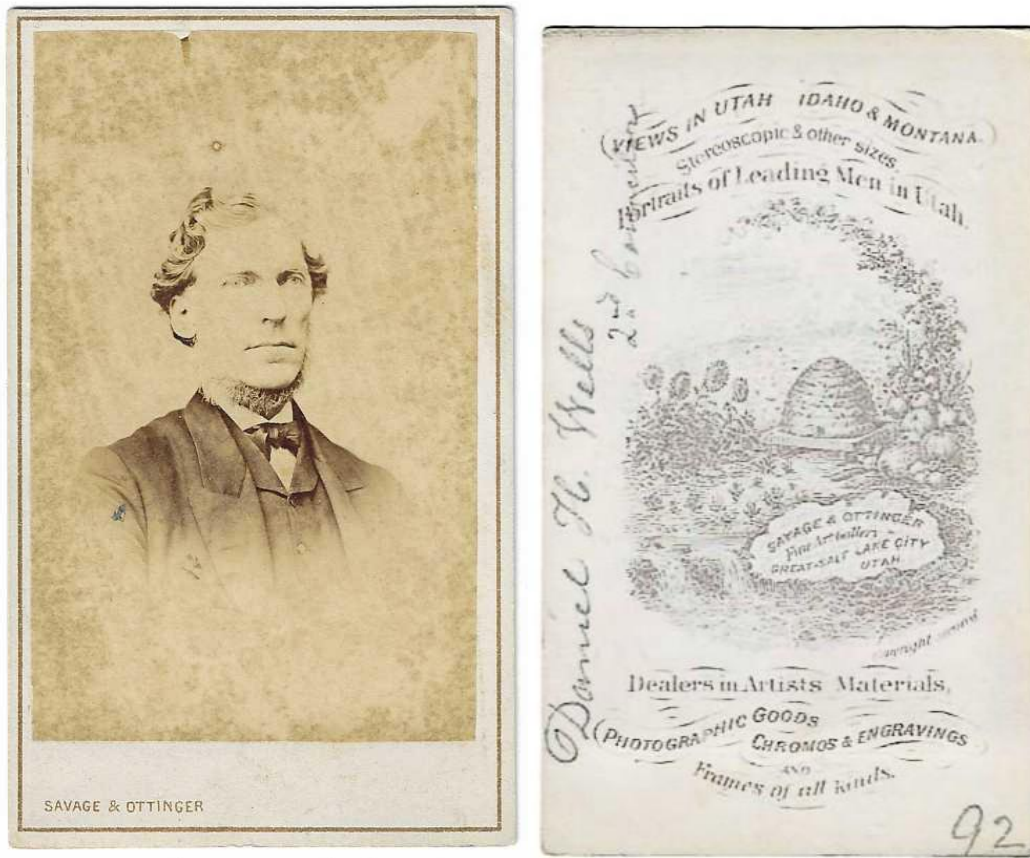 SAVAGE & OTTINGER
VIEWS IN UTAH IDAHO & MONTANA.
Stereoscopic & other sizes.
Portraits of Leading Men in Utah.
SAVAGE & OTTINGER
Fine Art Gallery
GREAT SALT LAKE CITY
UTAH.
Copyright secured
Dealers in Artists Materials,
PHOTOGRAPHIC GOODS
CHROMOS & ENGRAVINGS
AND
Frames of all kinds.
Daniel H. Wells
2nd Councilor
92